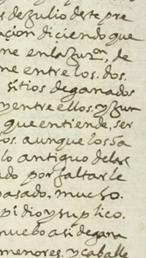 de Zulio deste pre
acion diciendo que
me en la Zuon, de
me entre los. dos.
sitios de ganados
y entre ellos, y
que entiende, ser
os. aunque los sa
lo antiguo de las
ado por faltar le
pasado. mucho.
pidio y suplico.
nuebo asi de gana
menores, y caballe